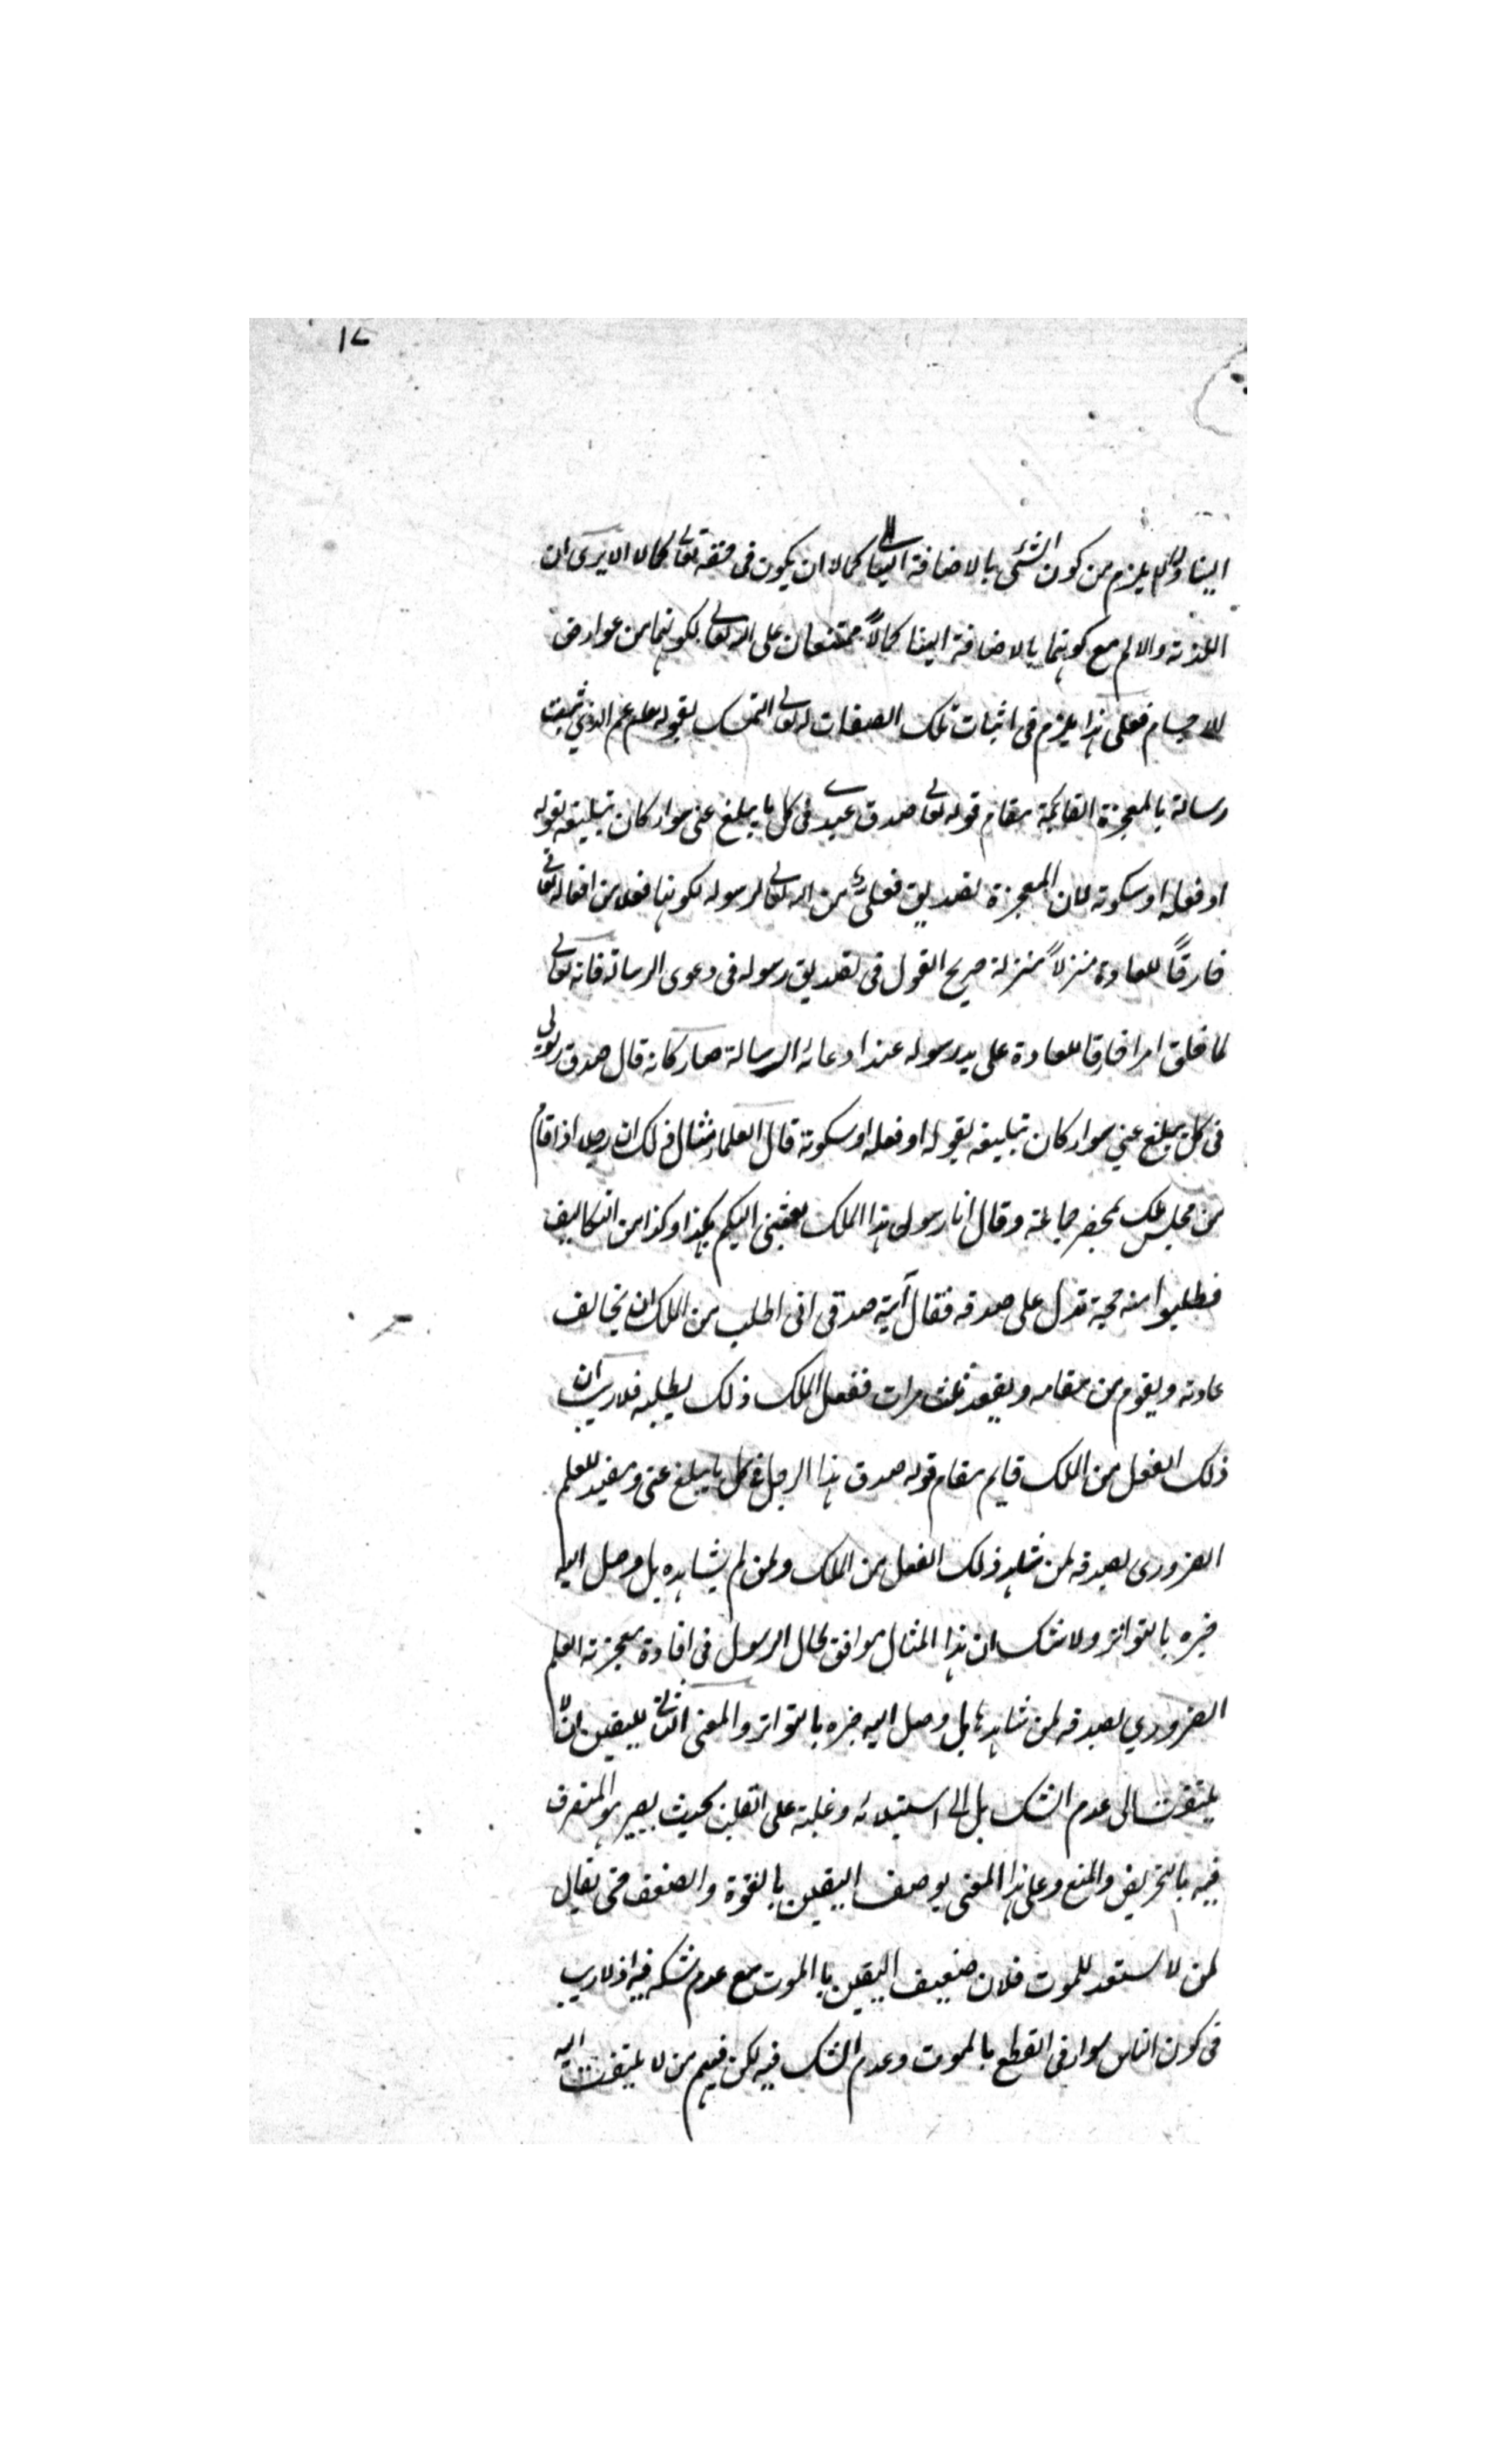 ١٧
الينا ولا يلزم من كون الشئ بالاضافة الينا كمالا ان يكون فى حقه تعالى كمالا الا يرى ان
اللذة والالم مع كونهما بالاضافة الينا كمالاً ممتنعان على الله تعالى لكونهما من عوارض
الاجسام فعلى هذا يلزم فى اثبات تلك الصفات له تعالى التمسك بقوله عم الذي ثبت
رسالة بالمعجزة القائمة مقام قوله تعالى صدق عبدي فى كل ما يبلغ عنى سواء كان تبليغه بقوله
او فعله او سكوته لان المعجزة تصديق فعلي من الله تعالى لرسوله لكونها فعلا من افعاله تعالى
خارقاً للعادة منزلاً منزلة صريح القول فى تصديق رسوله فى دعوى الرسالة فانه تعالى
لما خلق امرا خارقا للعادة على يد رسوله عند ادعائه الرسالة صار كانه قال صدق رسولي
فى كل يبلغ عني سواء كان تبليغه بقوله او فعله او سكوته قال العلماء مثال ذلك ان رجلا اذا قام
من مجلس ملك بمحضر جماعة وقال انا رسول هذا الملك بعثنى اليكم بكذا وكذا من التكاليف
فطلبوا منه حجة تدل على صدقه فقال آية صدقى انى اطلب من الملك ان يخالف
عادته ويقوم من مقامه ويقعد ثلث مرات ففعل الملك ذلك بطلبه فلا ريب ان
ذلك الفعل من الملك قايم مقام قوله صدق هذا الرجل فى كل ما يبلغ عنى ومفيد للعلم
الضرورى بصدقه لمن شاهد ذلك الفعل من الملك ولمن لم يشاهده بل وصل اليه
خبره بالتواتر ولا شك ان هذا المثال موافق لحال الرسول فى افادة معجزته العلم
الضروري بصدقه لمن شاهدها بل وصل اليه خبره بالتواتر والمعنى الثانى لليقين ان لا
يلتفت الى عدم الشك بل الى استيلائه وغلبته على القلب بحيث يصير هو المتصرف
فيه بالتحريض والمنع وعلى هذا المعنى يوصف اليقين بالقوة والضعف حتى يقال
لمن لا يستعد للموت فلان ضعيف اليقين بالموت مع عدم شكه فيه اذ لا ريب
فى كون الناس سواء فى القطع بالموت وعدم الشك فيه لكن فيهم من لا يلتفت اليه